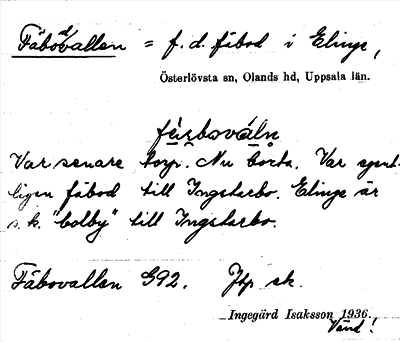 Fäbodvallen = f. d. fäbod i Elinge,
Österlövsta sn, Olands hd, Uppsala län.
Var senare torp. Nu borta. Var egent-
ligen fäbod till Ingstarbo. Elinge är
s. k. "bolby" till Ingstarbo.
Fäbovallen G92. Jfp sk.
Ingegärd Isaksson 1936.
Vänd!